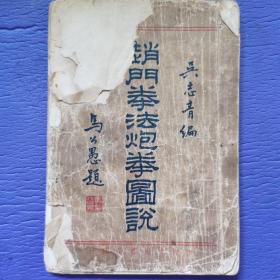 吳志青編
趙門拳法炮拳圖說
馬公愚題